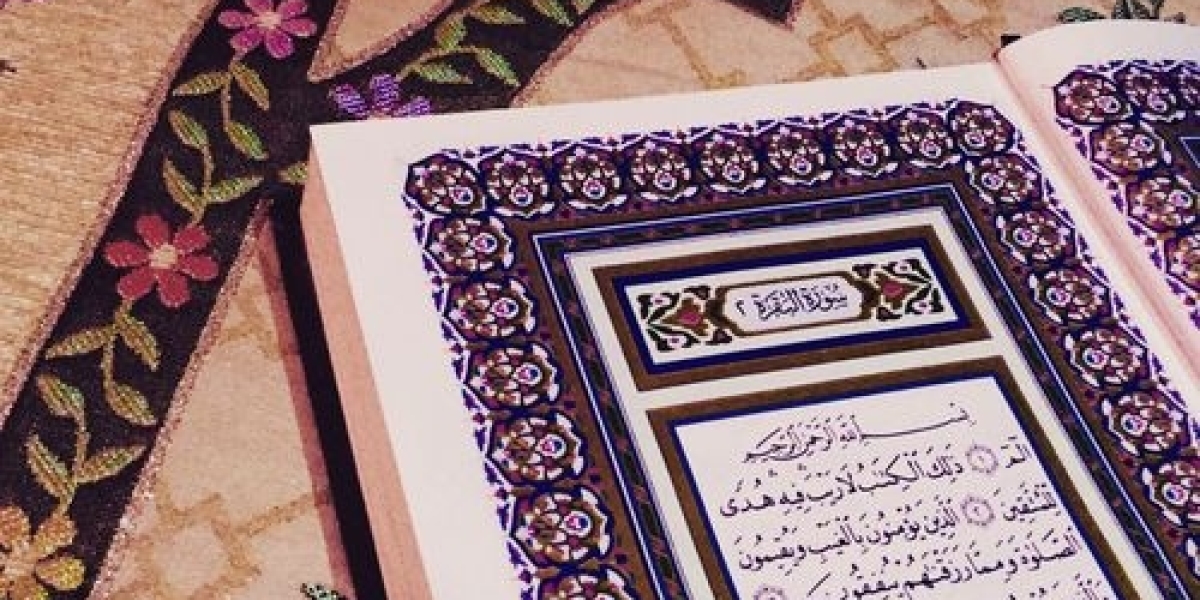 سُورَةُ البَقَرَةِ ٢
بِسْمِ اللَّهِ الرَّحْمَٰنِ الرَّحِيمِ
الٓمٓ ١ ذَٰلِكَ الْكِتَٰبُ لَا رَيْبَ فِيهِ هُدًى
لِّلْمُتَّقِينَ ٢ الَّذِينَ يُؤْمِنُونَ بِالْغَيْبِ وَيُقِيمُونَ
الصَّلَوٰةَ وَمِمَّا رَزَقْنَٰهُمْ يُنفِقُونَ
وَالَّذِينَ